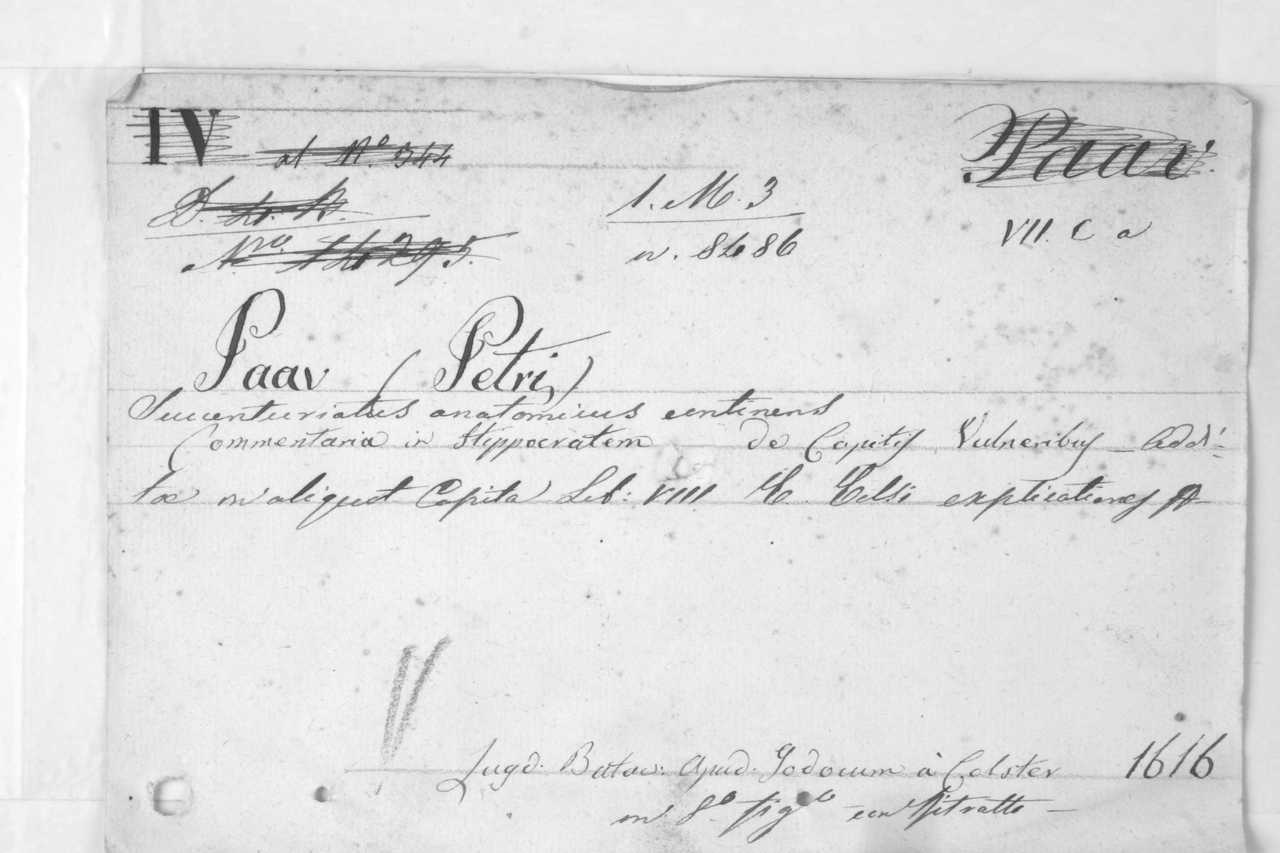 IV al N.º 344 Paav.
D. Sr. A.
1. M. 3
Nro 14295.
n. 8486
VII. C a
Paav (Petri)
Succenturiatus anatomicus continens
Commentaria in Hippocratem de Capitis Vulneribus – Addi-
tae in aliquot Capita Lib: VIII. C. Celsi explicationes
Lugd. Batav. Apud. Jodocum à Colster 1616
in 8.º fig.te con Ritratto –